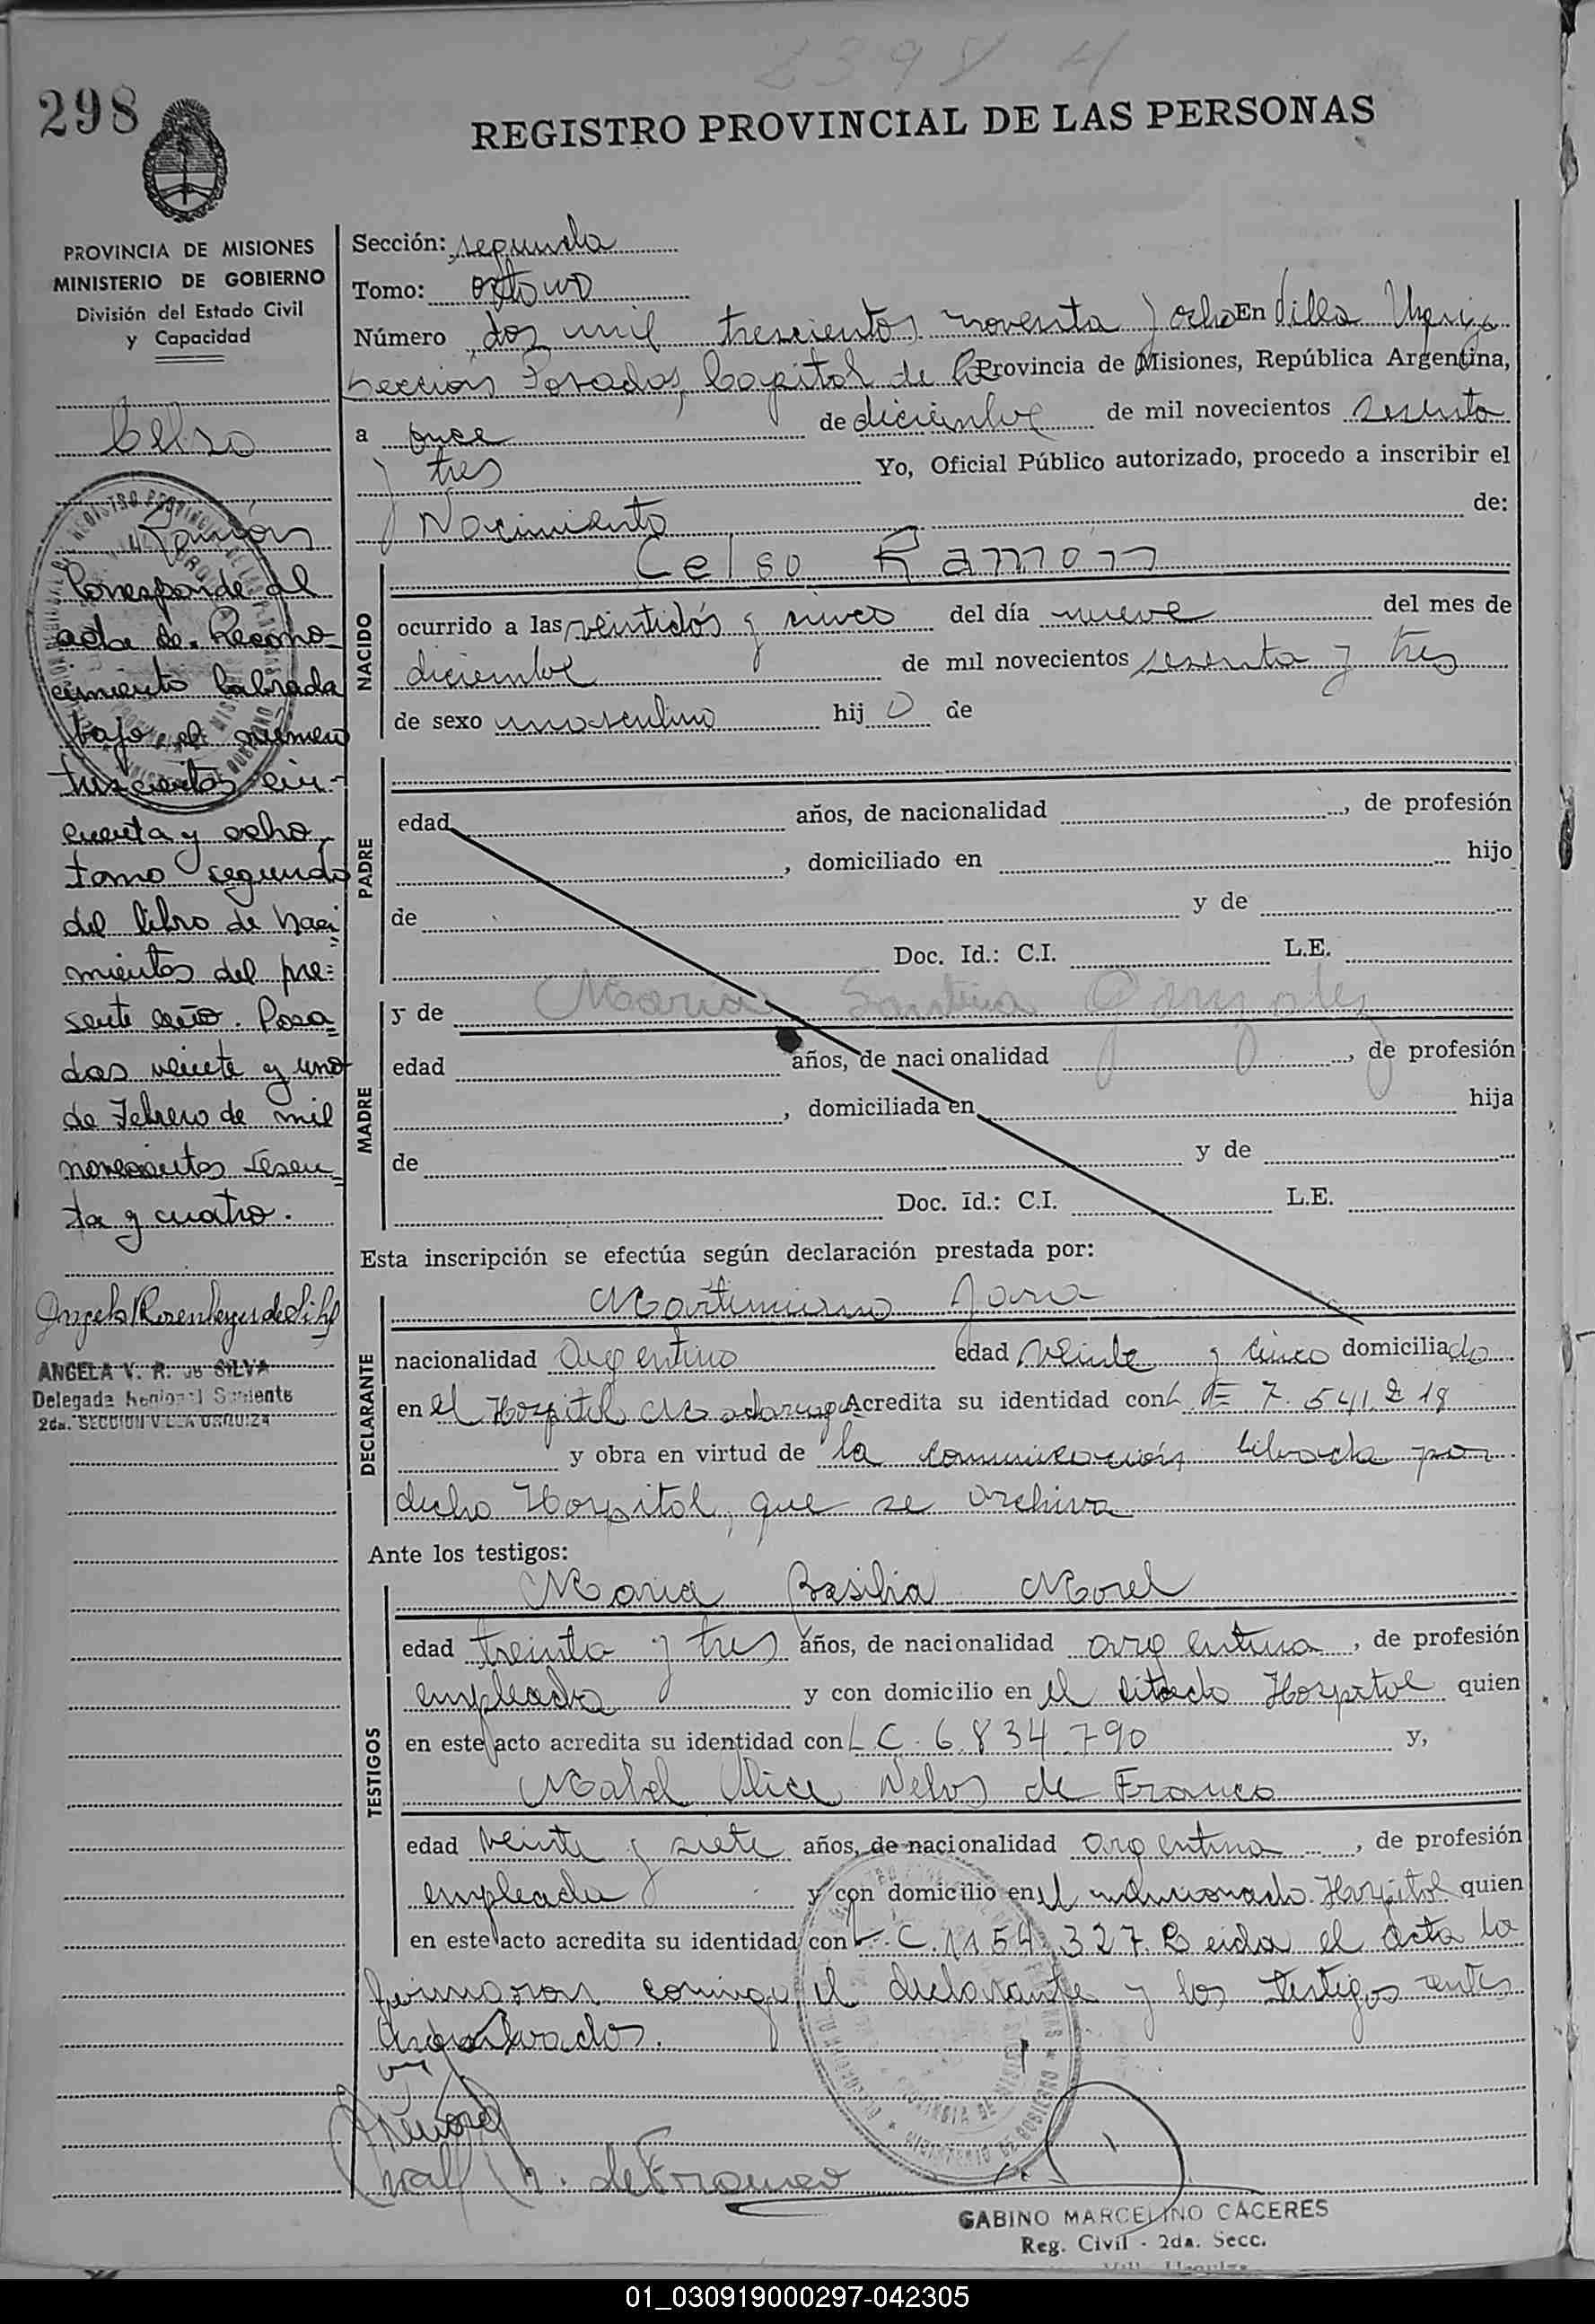 2398 H
298
REGISTRO PROVINCIAL DE LAS PERSONAS
PROVINCIA DE MISIONES
MINISTERIO DE GOBIERNO
División del Estado Civil
y Capacidad
Celso
Ramón
Corresponde al
acta de Recono-
cimiento labrada
bajo el número
trescientos cin-
cuenta y ocho
tomo segundo
del libro de Naci
mientos del pre=
sente año. Posa=
das veinte y uno
de Febrero de mil
novecientos sesen=
ta y cuatro.
ANGELA V. R. de SILVA
Delegada Regional
2da. SECCION VILLA URQUIZA
Sección: segunda
Tomo: octavo
Número dos mil trescientos noventa y ocho En Villa Urquiza
Sección Posadas, Capital de la Provincia de Misiones, República Argentina,
a once de diciembre de mil novecientos sesenta
y tres Yo, Oficial Público autorizado, procedo a inscribir el
Nacimiento de:
NACIDO
Celso Ramón
ocurrido a las veintidós y cinco del día nueve del mes de
diciembre de mil novecientos sesenta y tres
de sexo masculino hij o de
PADRE
edad años, de nacionalidad , de profesión
, domiciliado en hijo
de y de
Doc. Id.: C.I. L.E.
MADRE
y de Maria Gonzalez
edad años, de nacionalidad , de profesión
, domiciliada en hija
de y de
Doc. Id.: C.I. L.E.
Esta inscripción se efectúa según declaración prestada por:
DECLARANTE
Martimiano Jara
nacionalidad argentino edad veinte y cinco domiciliado
en el Hospital Madariaga Acredita su identidad con L E 7.541.218
y obra en virtud de la comunicación librada por
dicho Hospital, que se archiva
Ante los testigos:
TESTIGOS
Maria Basilia Morel
edad treinta y tres años, de nacionalidad argentina, de profesión
empleada y con domicilio en el citado Hospital quien
en este acto acredita su identidad con L C. 6.834.790 y,
Mabel Alice de Franco
edad veinte y siete años, de nacionalidad argentina, de profesión
empleada y con domicilio en el mencionado Hospital quien
en este acto acredita su identidad con L. C. 1154.327. Leida el acta la
firmaron conmigo, el declarante y los testigos antes
de Franco
GABINO MARCELINO CACERES
Reg. Civil - 2da. Secc.
01_030919000297-042305